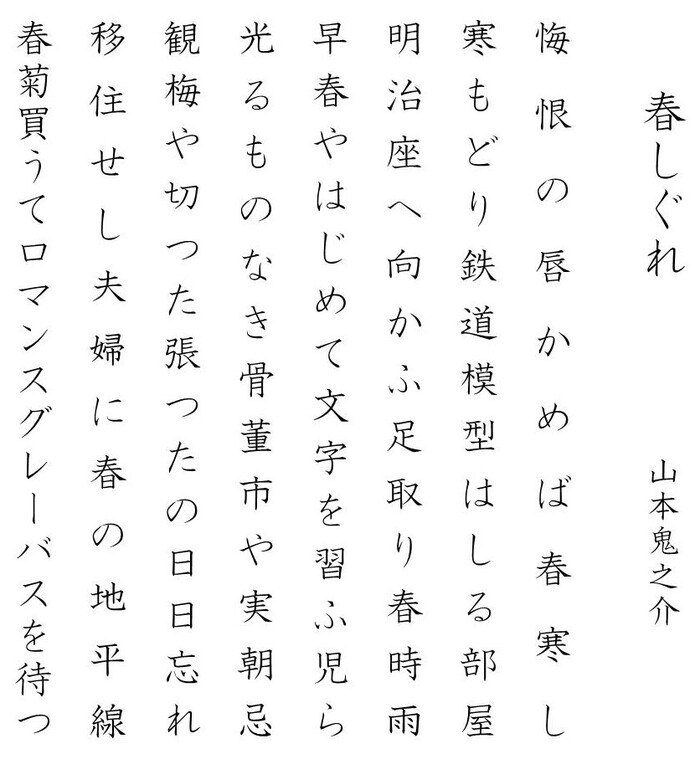 春しぐれ
山本鬼之介
悔恨の唇かめば春寒し
寒もどり鉄道模型はしる部屋
明治座へ向かふ足取り春時雨
早春やはじめて文字を習ふ児ら
光るものなき骨董市や実朝忌
観梅や切つた張つたの日日忘れ
移住せし夫婦に春の地平線
春菊買うてロマンスグレーバスを待つ